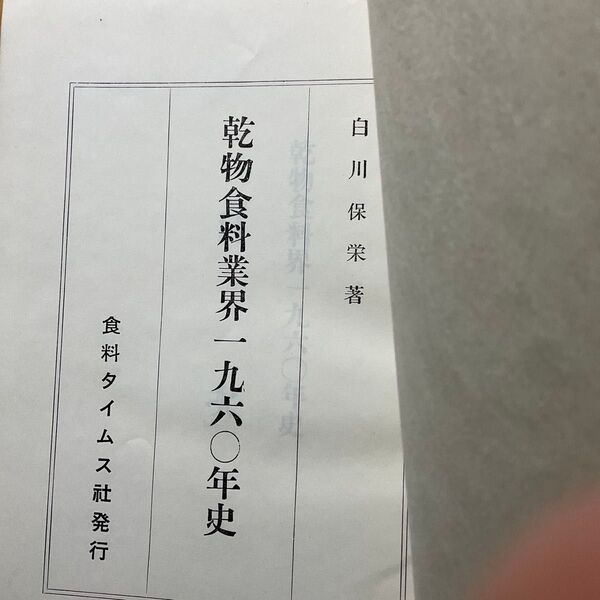 白川保栄著
乾物食料業界一九六〇年史
食料タイムス社発行